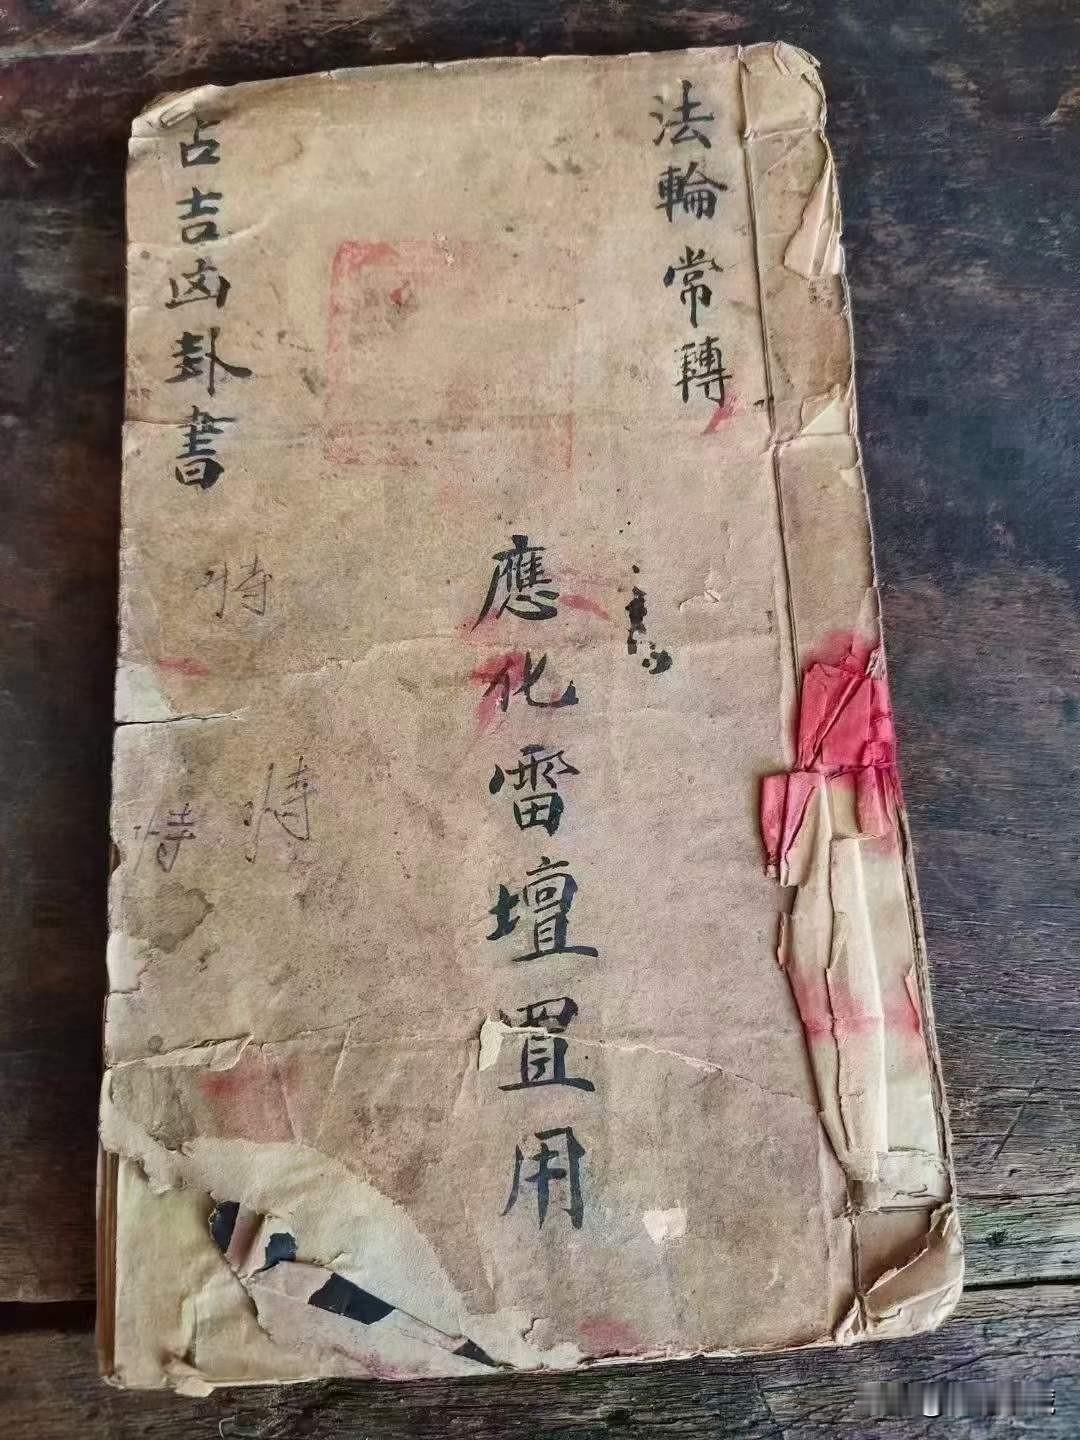 法輪常轉
應化雷壇置用
占吉凶卦書